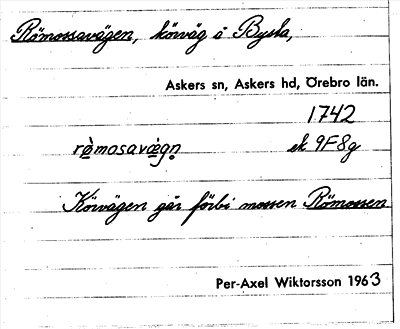 Römossavägen, körväg å Bysta,
Askers sn, Askers hd, Örebro län.
1742
rø̀mosavægn̥ ek 9F8g
Körvägen går förbi mossen Römossen
Per-Axel Wiktorsson 1963